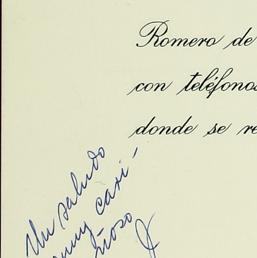 Romero de
con teléfonos
donde se re
Un saludo
muy cari-
ñoso